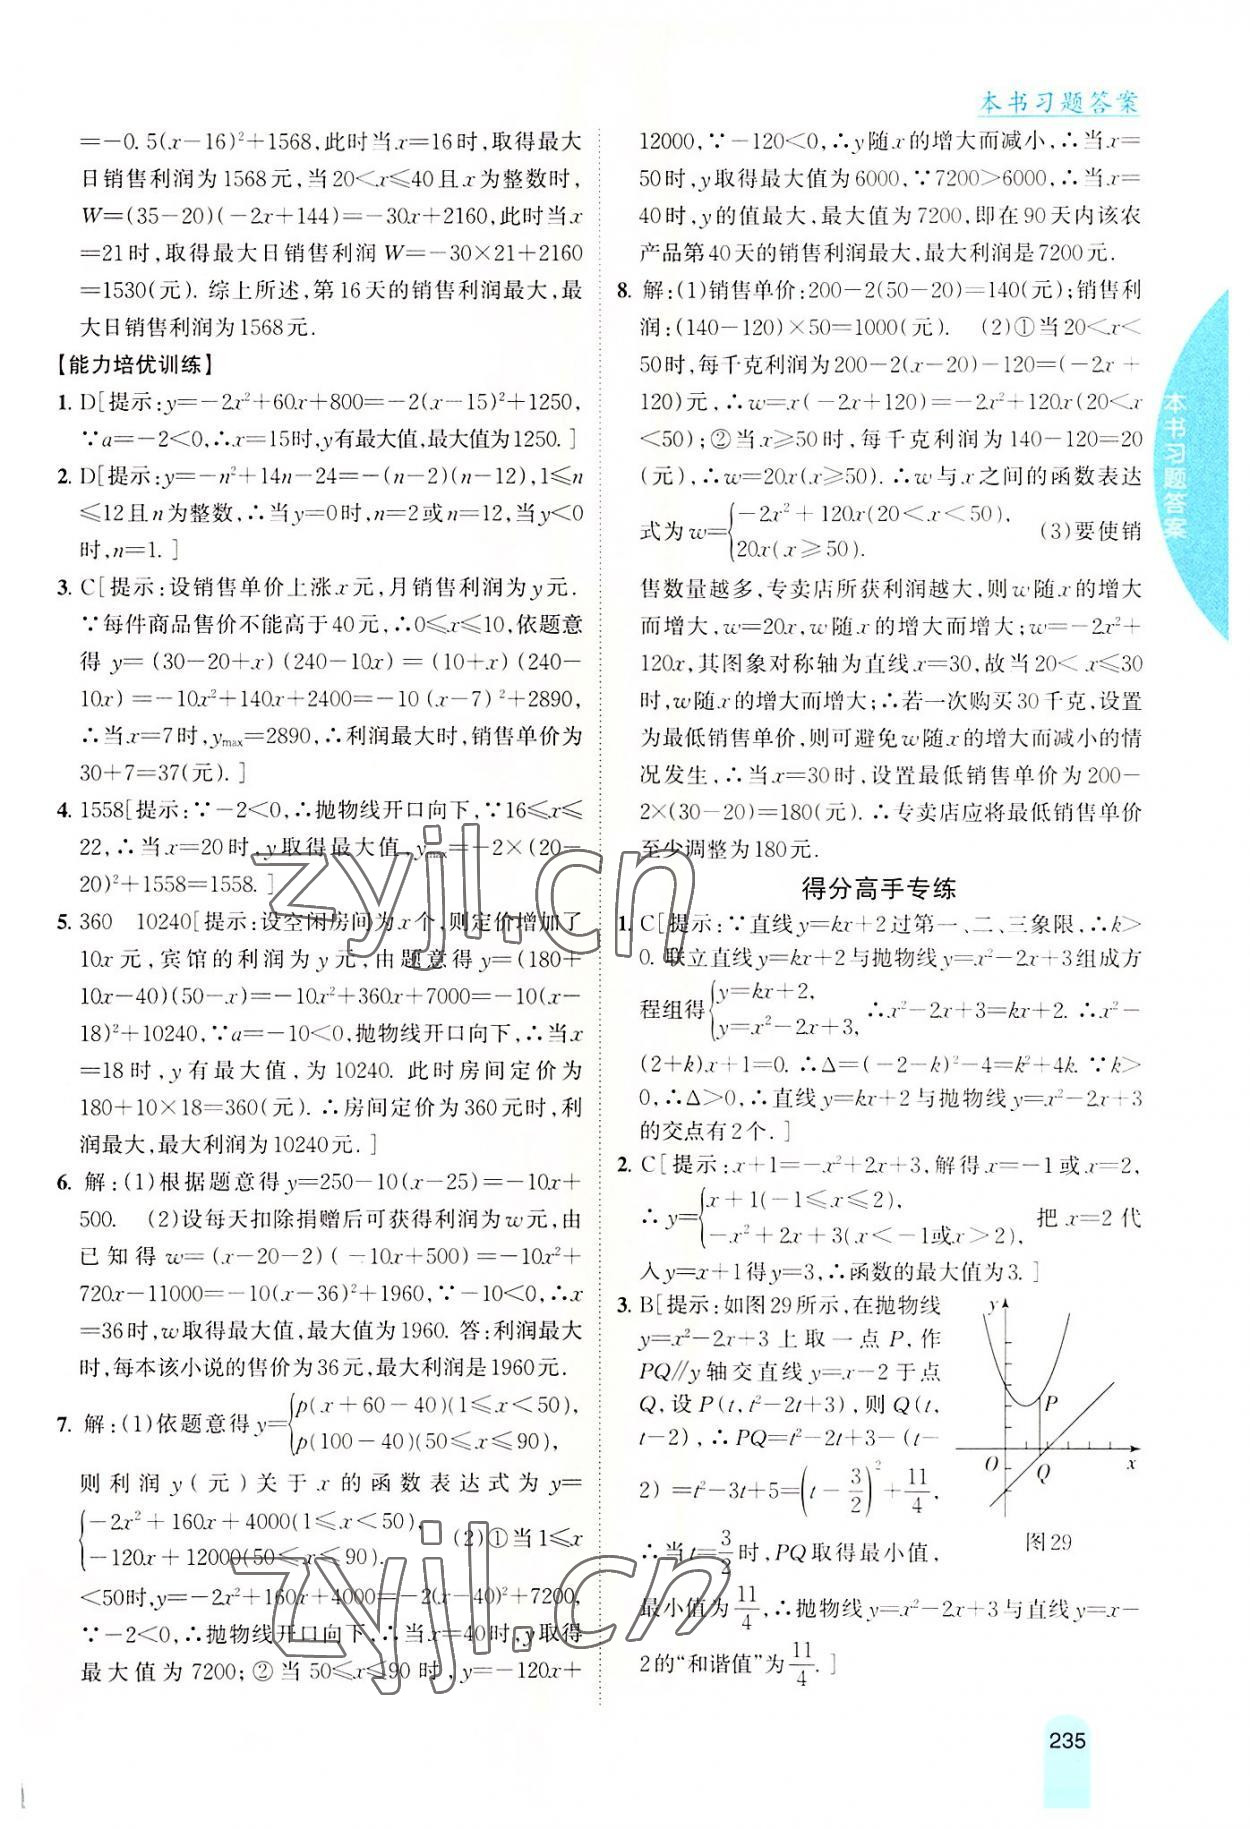 本书习题答案
=-0.5(x-16)²+1568,此时当x=16时,取得最大
日销售利润为1568元,当20<x≤40且x为整数时,
W=(35-20)(-2x+144)=-30x+2160,此时当x
=21时,取得最大日销售利润W=-30×21+2160
=1530(元). 综上所述,第16天的销售利润最大,最
大日销售利润为1568元.
【能力培优训练】
1. D[提示:y=-2x²+60x+800=-2(x-15)²+1250,
∵a=-2<0,∴x=15时,y有最大值,最大值为1250.]
2. D[提示:y=-n²+14n-24=-(n-2)(n-12),1≤n
≤12且n为整数,∴当y=0时,n=2或n=12,当y<0
时,n=1.]
3. C[提示:设销售单价上涨x元,月销售利润为y元.
∵每件商品售价不能高于40元,∴0≤x≤10,依题意
得 y=(30-20+x)(240-10x)=(10+x)(240-
10x)=-10x²+140x+2400=-10(x-7)²+2890,
∴当x=7时,yₘₐₓ=2890,∴利润最大时,销售单价为
30+7=37(元).]
4. 1558[提示:∵-2<0,∴抛物线开口向下,∵16≤x≤
22,∴当x=20时,y取得最大值,yₘₐₓ=-2×(20-
20)²+1558=1558.]
5. 360 10240[提示:设空闲房间为x个,则定价增加了
10x元,宾馆的利润为y元,由题意得y=(180+
10x-40)(50-x)=-10x²+360x+7000=-10(x-
18)²+10240,∵a=-10<0,抛物线开口向下,∴当x
=18时,y有最大值,为10240. 此时房间定价为
180+10×18=360(元).∴房间定价为360元时,利
润最大,最大利润为10240元.]
6. 解:(1)根据题意得y=250-10(x-25)=-10x+
500. (2)设每天扣除捐赠后可获得利润为w元,由
已知得w=(x-20-2)(-10x+500)=-10x²+
720x-11000=-10(x-36)²+1960,∵-10<0,∴x
=36时,w取得最大值,最大值为1960. 答:利润最大
时,每本该小说的售价为36元,最大利润是1960元.
7. 解:(1)依题意得y={p(x+60-40)(1≤x<50),
p(100-40)(50≤x≤90),
则利润y(元)关于x的函数表达式为y=
{-2x²+160x+4000(1≤x<50),
-120x+12000(50≤x≤90). (2)①当1≤x
<50时,y=-2x²+160x+4000=-2(x-40)²+7200,
∵-2<0,∴抛物线开口向下,∴当x=40时,y取得
最大值为7200;②当50≤x≤90时,y=-120x+
12000,∵-120<0,∴y随x的增大而减小,∴当x=
50时,y取得最大值为6000,∵7200>6000,∴当x=
40时,y的值最大,最大值为7200,即在90天内该农
产品第40天的销售利润最大,最大利润是7200元.
8. 解:(1)销售单价:200-2(50-20)=140(元);销售利
润:(140-120)×50=1000(元). (2)①当20<x<
50时,每千克利润为200-2(x-20)-120=(-2x+
120)元,∴w=x(-2x+120)=-2x²+120x(20<x
<50);②当x≥50时,每千克利润为140-120=20
(元),∴w=20x(x≥50).∴w与x之间的函数表达
式为w={-2x²+120x(20<x<50),
20x(x≥50). (3)要使销
售数量越多,专卖店所获利润越大,则w随x的增大
而增大,w=20x,w随x的增大而增大;w=-2x²+
120x,其图象对称轴为直线x=30,故当20<x≤30
时,w随x的增大而增大;∴若一次购买30千克,设置
为最低销售单价,则可避免w随x的增大而减小的情
况发生,∴当x=30时,设置最低销售单价为200-
2×(30-20)=180(元).∴专卖店应将最低销售单价
至少调整为180元.
得分高手专练
1. C[提示:∵直线y=kx+2过第一、二、三象限,∴k>
0.联立直线y=kx+2与抛物线y=x²-2x+3组成方
程组得{y=kx+2,
y=x²-2x+3, ∴x²-2x+3=kx+2.∴x²-
(2+k)x+1=0.∴Δ=(-2-k)²-4=k²+4k.∵k>
0,∴Δ>0,∴直线y=kx+2与抛物线y=x²-2x+3
的交点有2个.]
2. C[提示:x+1=-x²+2x+3,解得x=-1或x=2,
∴y={x+1(-1≤x≤2),
-x²+2x+3(x<-1或x>2), 把x=2代
入y=x+1得y=3,∴函数的最大值为3.]
3. B[提示:如图29所示,在抛物线
y=x²-2x+3上取一点P,作
PQ∥y轴交直线y=x-2于点
Q,设P(t,t²-2t+3),则Q(t,
t-2),∴PQ=t²-2t+3-(t-
2)=t²-3t+5=(t-3/2)²+11/4,
∴当t=3/2时,PQ取得最小值,
最小值为11/4,∴抛物线y=x²-2x+3与直线y=x-
2的“和谐值”为11/4.]
y
P
O
Q
x
图29
本书习题答案
235
zyjl.cn
zyjl.cn